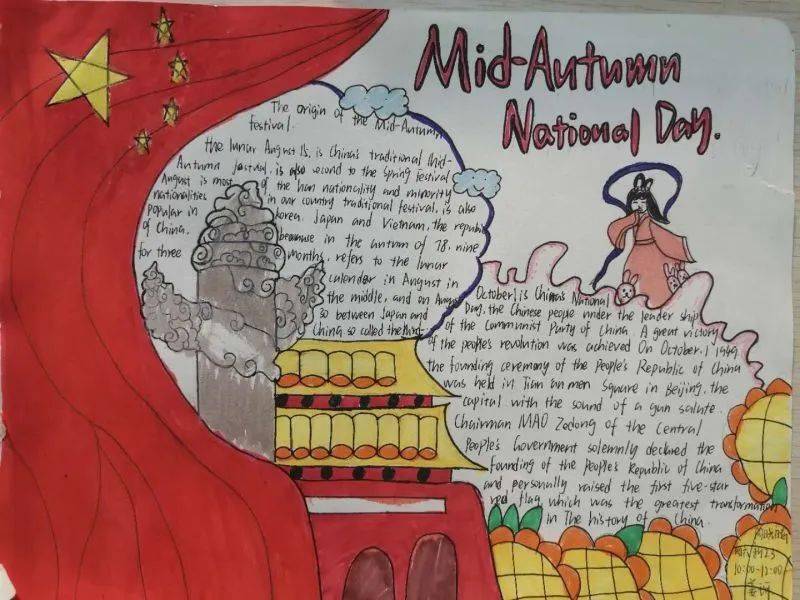 Mid-Autumn
National Day.
The origin of the Mid-Autumn
festival.
the lunar August 15, is China's traditional Mid-
Autumn festival, is also second to the Spring Festival
August is most of the han nationality and minority
nationalities in our country traditional festival. is also
popular in Korea. Japan and Vietnam. the republic
of China. because in the autumn of 78, nine
for three months, refers to the lunar
calendar in August in
the middle, and on August
so between Japan and
China, so called the Mid-
October 1 is China's National
Day, the Chinese people under the leader ship
of the Communist Party of China A great victory
of the people's revolution was achieved On October, 1 1949
the founding ceremony of the People's Republic of China
was held in Tian an men Square in Beijing, the
capital with the sound of a gun salute.
Chairman MAO Zedong of the Central
People's Government solemnly declared the
founding of the People's Republic of China
and personally raised the first five-star
red flag, which was the greatest transformation
in The history of China.
10:00-12:00